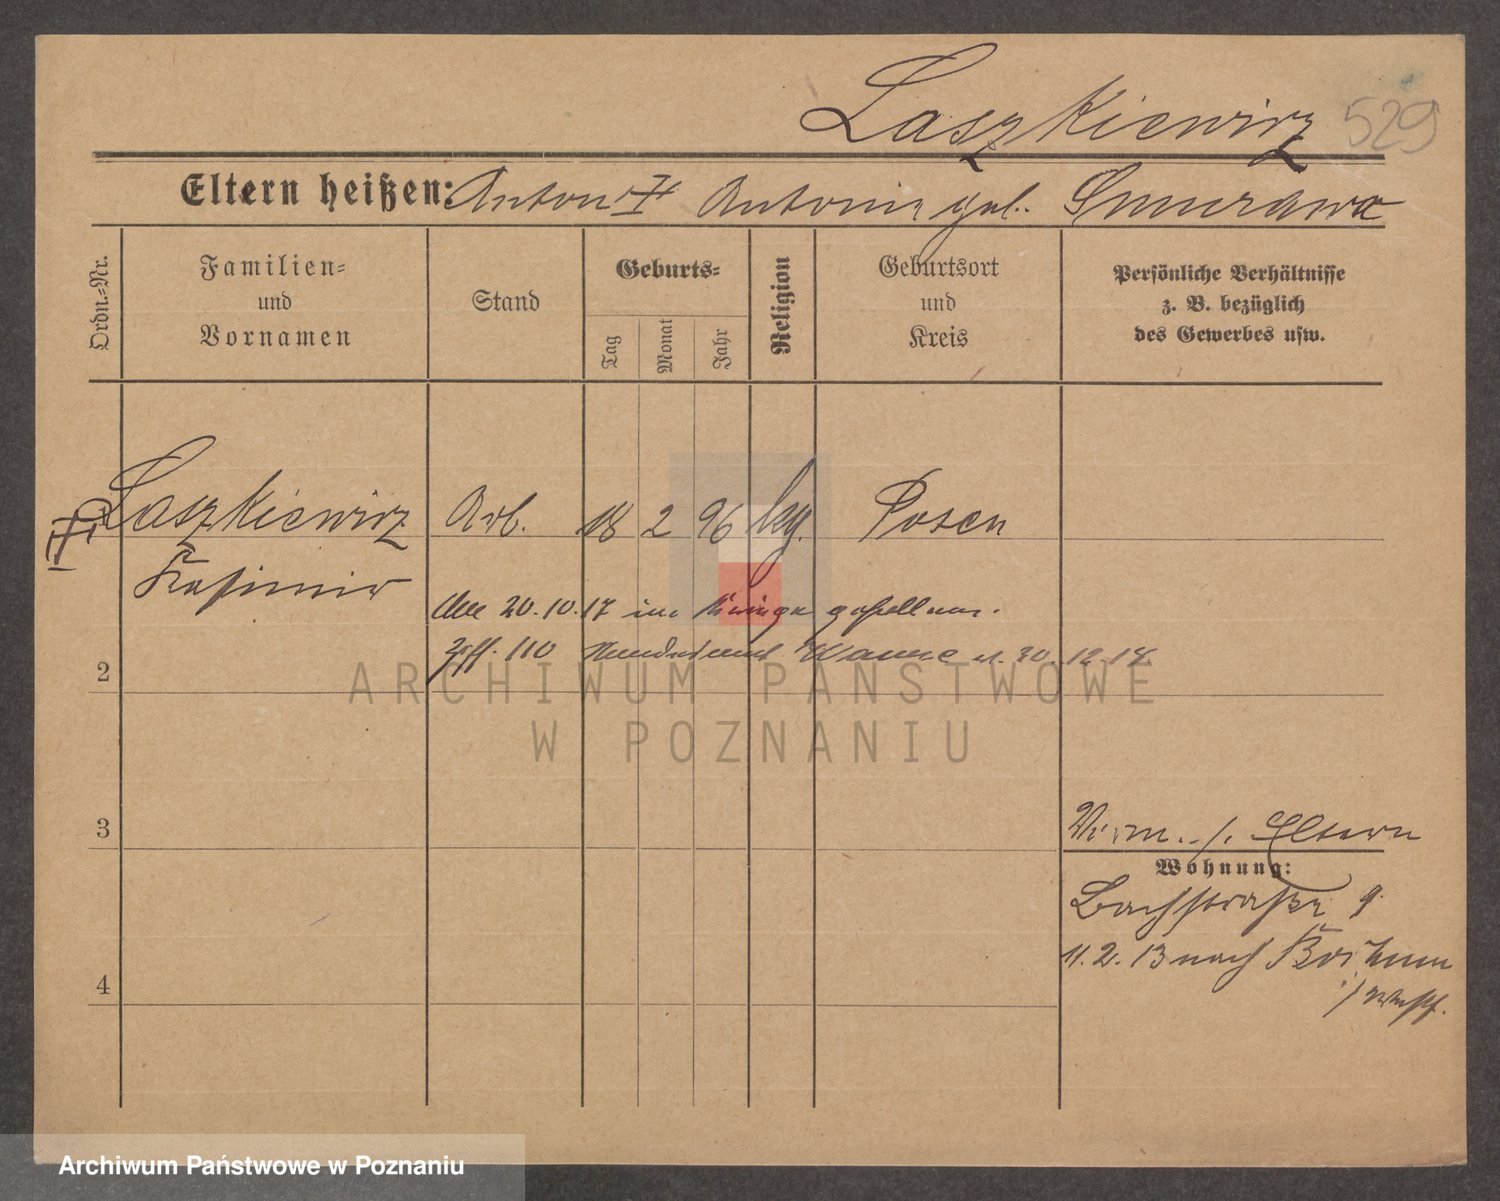 Laszkiewicz 529
Eltern heißen: Anton Antonie geb. Smurawa
Ordn.-Nr.
Familien-
und
Vornamen
Stand
Geburts-
Tag
Monat
Jahr
Religion
Geburtsort
und
Kreis
Persönliche Verhältnisse
z. B. bezüglich
des Gewerbes usw.
Laszkiewicz Arb. 18 2 96 kg. Posen
Kasimir
Am 20.10.17 im Kriege gefallen.
110 Standesamt Wanne v. 30.12.18.
2
ARCHIWUM PAŃSTWOWE
W POZNANIU
3
Verm. s. Eltern
Wohnung:
Bachstraße 9
11.2.13 nach Bochum
4
i/Westf.
Archiwum Państwowe w Poznaniu